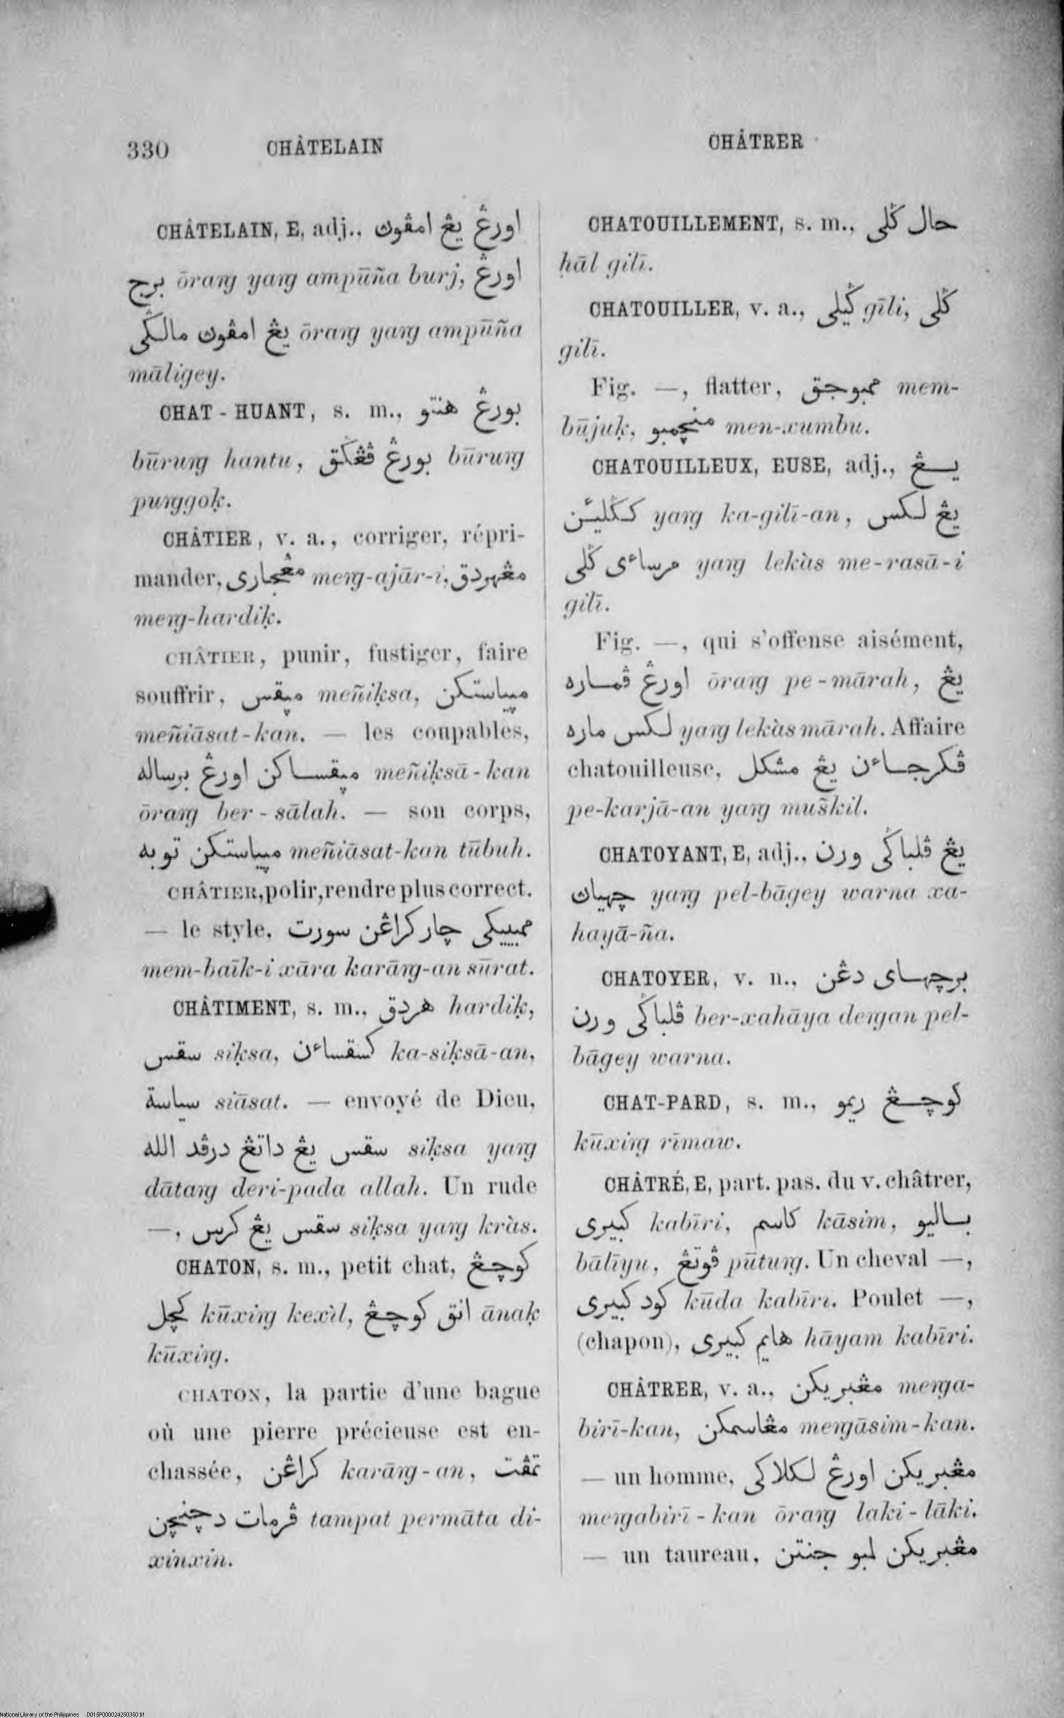 330 CHÂTELAIN CHÂTRER
CHÂTELAIN, E, adj., اورڠ يڠ امڤوڽ
برج ōraŋ yaŋ ampūña burj, اورڠ
يڠ امڤوڽ ماليڬى ōraŋ yaŋ ampūña
māligey.
CHAT-HUANT, s. m., بورڠ هنتو
būruŋ hantu, بورڠ ڤڠݢق būruŋ
puŋgoḳ.
CHÂTIER, v. a., corriger, répri-
mander, مڠجارى meŋ-ajār-i, مڠهردق
meŋ-hardiḳ.
CHÂTIER, punir, fustiger, faire
souffrir, مڽقس meñiḳsa, مڽياستكن
meñiāsat-kan. — les coupables,
مڽقساكن اورڠ برساله meñiḳsā-kan
ōraŋ ber-sālah. — son corps,
مڽياستكن توبه meñiāsat-kan tūbuh.
CHÂTIER, polir, rendre plus correct.
— le style, ممبيكى چار كراڠن سورت
mem-baīk-i xāra karāŋ-an sūrat.
CHÂTIMENT, s. m., هردق hardiḳ,
سقس siḳsa, كسقساءن ka-siḳsā-an,
سياسة siāsat. — envoyé de Dieu,
سقس يڠ داتڠ درڤد الله siḳsa yaŋ
dātaŋ deri-pada allah. Un rude
—, سقس يڠ كرس siḳsa yaŋ kràs.
CHATON, s. m., petit chat, كوچڠ
كچل kūxiŋ kexìl, انق كوچڠ ānaḳ
kūxiŋ.
CHATON, la partie d'une bague
où une pierre précieuse est en-
chassée, كراڠن karāŋ-an, تمڤت
ڤرمات دچنچن tampat permāta di-
xinxin.
CHATOUILLEMENT, s. m., حال ݢلى
ḥāl gilī.
CHATOUILLER, v. a., ݢيلى gīli, ݢلى
gilī.
Fig. —, flatter, ممبوجق mem-
būjuḳ, منچمبو men-xumbu.
CHATOUILLEUX, EUSE, adj., يڠ
كݢلين yaŋ ka-gilī-an, يڠ لكس
مرساءى ݢلى yaŋ lekàs me-rasā-i
gilī.
Fig. —, qui s'offense aisément,
اورڠ ڤماره ōraŋ pe-mārah, يڠ
لكس ماره yaŋ lekàs mārah. Affaire
chatouilleuse, ڤكرجاءن يڠ مشكل
pe-karjā-an yaŋ muškil.
CHATOYANT, E, adj., يڠ ڤلباݢى ورن
چهياڽ yaŋ pel-bāgey warna xa-
hayā-ña.
CHATOYER, v. n., برچهاى دڠن
ڤلباݢى ورن ber-xahāya deŋan pel-
bāgey warna.
CHAT-PARD, s. m., كوچڠ ريمو
kūxiŋ rīmaw.
CHÂTRÉ, E, part. pas. du v. châtrer,
كبيرى kabīri, كاسم kāsim, باليو
bālīyu, ڤوتڠ pūtuŋ. Un cheval —,
كود كبيرى kūda kabīri. Poulet —,
(chapon), هايم كبيرى hāyam kabīri.
CHÂTRER, v. a., مڠبريكن meŋa-
birī-kan, مڠاسمكن meŋāsim-kan.
— un homme, مڠبريكن اورڠ لكلاكى
meŋabirī-kan ōraŋ laki-lāki.
— un taureau, مڠبريكن لمبو جنتن
National Library of the Philippines